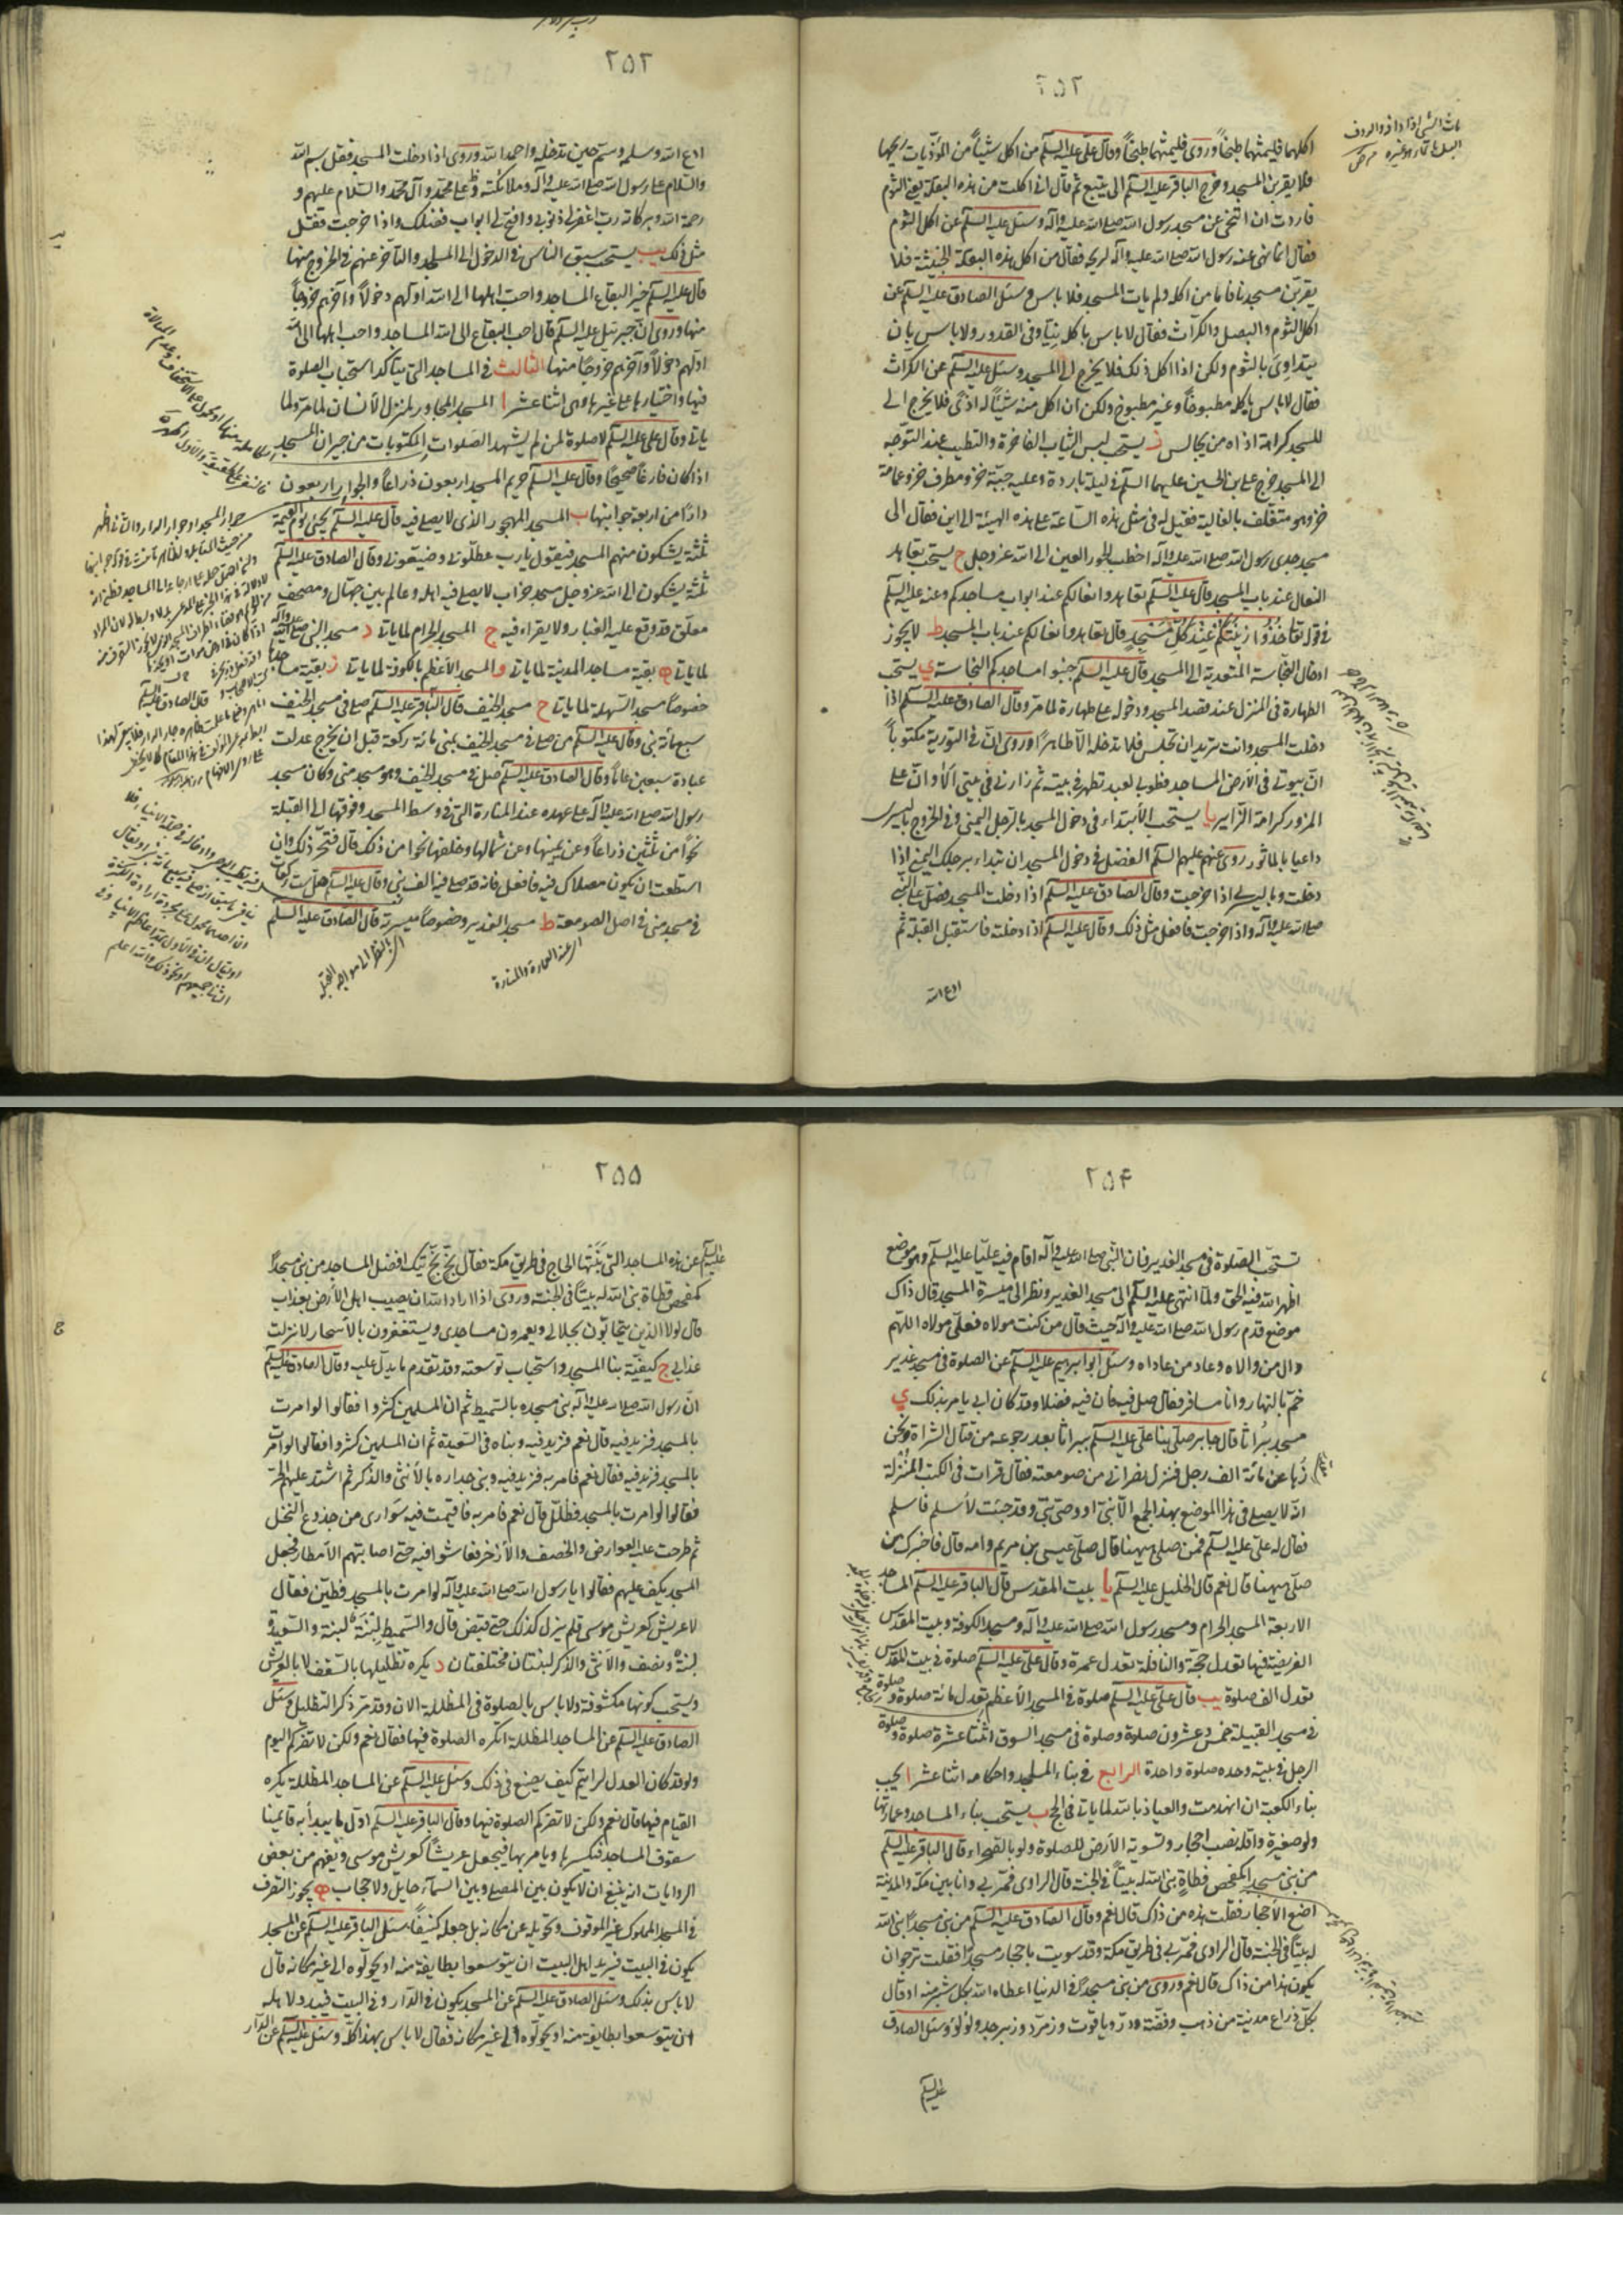 ٢٥٢
اكلها فليمثها طبخاً وروى فليمثهما طبخاً وقال على عليه السلم من اكل شيئاً من المؤذيات ريحها
فلا يقربن المسجد وخرج الباقر عليه السلم الى ينبع ثم قال انى اكلت من هذه البقلة يعنى الثوم
فاردت ان اتنحى عن مسجد رسول الله صلى الله عليه وآله وسئل عليه السلم عن اكل الثوم
فقال انما نهى عنه رسول الله صلى الله عليه وآله لريحه فقال من اكل هذه البقلة الخبيثة فلا
يقربن مسجدنا فاما من اكله ولم يات المسجد فلا باس وسئل الصادق عليه السلم عن
اكل الثوم والبصل والكراث فقال لا باس باكله نيّاً وفى القدور ولا باس بان
يتداوى بالثوم ولكن اذا اكل ذلك فلا يخرج الى المسجد وسئل عليه السلم عن الكراث
فقال لا باس باكله مطبوخاً وغير مطبوخ ولكن ان اكل منه شيئاً له اذى فلا يخرج الى
المسجد كراهة اذاه من يجالس ز يستحب لبس الثياب الفاخرة والتطيب عند التوجه
الى المسجد خرج على بن الحسين عليهما السلم فى ليلة باردة وعليه جبة خز ومطرف خز وعمامة
خز وهو متغلف بالغالية فقيل له فى مثل هذه الساعة على هذه الهيئة الى اين فقال الى
مسجد جدى رسول الله صلى الله عليه وآله اخطب الحور العين الى الله عز وجل ح يستحب تعاهد
النعال عند باب المسجد قال عليه السلم تعاهدوا نعالكم عند ابواب مساجدكم وعنه عليه السلم
فى قوله تعا خذوا زينتكم عند كل مسجد قال تعاهدوا نعالكم عند باب المسجد ط لا يجوز
ادخال النجاسة المتعدية الى المسجد قال عليه السلم جنبوا مساجدكم النجاسة ى يستحب
الطهارة فى المنزل عند قصد المسجد ودخوله على طهارة لما مر وقال الصادق عليه السلم اذا
دخلت المسجد وانت تريد ان تجلس فلا تدخله الا طاهراً وروى ان فى التورية مكتوباً
ان بيوتى فى الارض المساجد فطوبى لعبد تطهر فى بيته ثم زارنى فى بيتى الا وان على
المزور كرامة الزاير يا يستحب الابتداء فى دخول المسجد بالرجل اليمنى وفى الخروج باليسرى
داعيا بالماثور روى عنهم عليهم السلم الفضل فى دخول المسجد ان تبداء برجلك اليمنى اذا
دخلت وباليسرى اذا خرجت وقال الصادق عليه السلم اذا دخلت المسجد فصل على النبى
صلى الله عليه وآله واذا خرجت فافعل مثل ذلك وقال عليه السلم اذا دخلت فاستقبل القبلة ثم
ادع الله
٢٥٣
ادع الله وسله وسم حين تدخله واحمد الله وروى اذا دخلت المسجد فقل بسم الله
والسلام على رسول الله صلى الله عليه وآله وملائكته على محمد وآل محمد والسلام عليهم و
رحمة الله وبركاته رب اغفر لى ذنوبى وافتح لى ابواب فضلك واذا خرجت فقل
مثل ذلك يب يستحب سبق الناس فى الدخول الى المساجد والتاخر عنهم فى الخروج منها
قال عليه السلم خير البقاع المساجد واحب اهلها الى الله اولهم دخولاً وآخرهم خروجاً
منها وروى ان جبرئيل عليه السلم قال احب البقاع الى الله المساجد واحب اهلها الى الله
اولهم دخولاً وآخرهم خروجاً منها الثالث فى المساجد التى يتأكد استحباب الصلوة
فيها واختيارها على غيرها وهى اثنا عشر ا المسجد المجاور لمنزل الانسان لما مر ولما
ياتى وقال على عليه السلم لا صلوة لمن لم يشهد الصلوات المكتوبات من جيران المسجد
اذا كان فارغاً صحيحاً وقال عليه السلم حريم المسجد اربعون ذراعاً والجوار اربعون
داراً من اربعة جوانبها ب المسجد المهجور الذى لا يصلى فيه قال عليه السلم يجئ يوم القيمة
ثلثة يشكون منهم المسجد فيقول يا رب عطلونى وضيعونى وقال الصادق عليه السلم
ثلثة يشكون الى الله عز وجل مسجد خراب لا يصلى فيه اهله وعالم بين جهال ومصحف
معلق قد وقع عليه الغبار ولا يقراء فيه ج المسجد الحرام لما ياتى د مسجد النبى صلى الله عليه وآله
لما ياتى ه بقية مساجد المدينة لما ياتى و المسجد الاعظم بالكوفة لما ياتى ز بقية مساجدها
خصوصاً مسجد السهلة لما ياتى ح مسجد الخيف قال الباقر عليه السلم صلى فى مسجد الخيف
سبعمائة نبى وقال عليه السلم من صلى فى مسجد الخيف بمنى مائة ركعة قبل ان يخرج عدلت
عبادة سبعين عاماً وقال الصادق عليه السلم صل فى مسجد الخيف وهو مسجد منى وكان مسجد
رسول الله صلى الله عليه وآله على عهده عند المنارة التى فى وسط المسجد وفوقها الى القبلة
نحواً من ثلثين ذراعاً وعن يمينها وعن شمالها وخلفها نحوا من ذلك قال فتحر ذلك وان
استطعت ان يكون مصلاك فيه فافعل فانه قد صلى فيه الف نبى وقال عليه السلم صل ست ركعات
فى مسجد منى فى اصل الصومعة ط مسجد الغدير وخصوصاً ميسرته قال الصادق عليه السلم
٢٥۴
تستحب الصلوة فى مسجد الغدير فان النبى صلى الله عليه وآله اقام فيه علياً عليه السلم وهو موضع
اظهر الله فيه الحق ولما انتهى عليه السلم الى مسجد الغدير ونظر الى ميسرة المسجد قال ذاك
موضع قدم رسول الله صلى الله عليه وآله حيث قال من كنت مولاه فعلى مولاه اللهم
وال من والاه وعاد من عاداه وسئل ابو ابرهيم عليه السلم عن الصلوة فى مسجد غدير
خم بالنهار وانا مسافر فقال صل فيه فان فيه فضلا وقد كان ابى يامر بذلك ى
مسجد براثا قال جابر صلى بنا على عليه السلم ببراثا بعد رجوعه من قتال الشراة ونحن
زهاء عن مائة الف رجل فنزل نصرانى من صومعته فقال قرات فى الكتب المنزلة
انه لا يصلى فى هذا الموضع بهذا الجمع الا نبى او وصى نبى وقد جئت لاسلم فاسلم
فقال له على عليه السلم فمن صلى ههنا قال صلى عيسى بن مريم وامه قال فاخبرك من
صلى ههنا قال نعم قال الخليل عليه السلم يا بيت المقدس قال الباقر عليه السلم المساجد
الاربعة المسجد الحرام ومسجد رسول الله صلى الله عليه وآله ومسجد الكوفة وبيت المقدس
الفريضة فيها تعدل حجة والنافلة تعدل عمرة وقال على عليه السلم صلوة فى بيت المقدس
تعدل الف صلوة يب قال على عليه السلم صلوة فى المسجد الاعظم تعدل مائة صلوة وصلوة
فى مسجد القبيلة خمس وعشرون صلوة وصلوة فى مسجد السوق اثنتا عشرة صلوة وصلوة
الرجل فى بيته وحده صلوة واحدة الرابع فى بناء المساجد واحكامه اثنا عشر ا يجب
بناء الكعبة ان انهدمت والعياذ بالله لما ياتى فى الحج ب يستحب بناء المساجد وعمارتها
ولو صغيرة واقله نصب احجار وتسوية الارض للصلوة ولو بالصحراء وقال الباقر عليه السلم
من بنى مسجداً كمفحص قطاة بنى الله له بيتاً فى الجنة قال الراوى فمر بى وانا بين مكة والمدينة
اضع الاحجار فقلت هذه من ذاك قال نعم وقال الصادق عليه السلم من بنى مسجداً بنى الله
له بيتاً فى الجنة قال الراوى فمر بى فى طريق مكة وقد سويت باحجار مسجداً فقلت نرجو ان
يكون هذا من ذاك قال نعم وروى من بنى مسجداً فى الدنيا اعطاه الله بكل شبر منه او قال
بكل ذراع مدينة من ذهب وفضة ودر وياقوت وزمرد وزبرجد ولؤلؤ وسئل الصادق
عليه السلم
٢٥٥
عليه السلم عن هذه المساجد التى بنتها الحاج فى طريق مكة فقال بخ بخ تيك افضل المساجد من بنى مسجداً
كمفحص قطاة بنى الله له بيتاً فى الجنة وروى اذا اراد الله ان يصيب اهل الارض بعذاب
قال لولا الذين يتحابون بجلالى ويعمرون مساجدى ويستغفرون بالاسحار لانزلت
عذابى ج كيفية بنا المسجد واستحباب توسعته وقد تقدم ما يدل عليه وقال الصادق عليه السلم
ان رسول الله صلى الله عليه وآله بنى مسجده بالسميط ثم ان المسلمين كثروا فقالوا لو امرت
بالمسجد فزيد فيه قال نعم فزيد فيه وبناه فى السعيدة ثم ان المسلمين كثروا فقالوا لو امرت
بالمسجد فزيد فيه فقال نعم فامر به فزيد فيه وبنى جداره بالانثى والذكر ثم اشتد عليهم الحر
فقالوا لو امرت بالمسجد فظلل قال نعم فامر به فاقيمت فيه سوارى من جذوع النخل
ثم طرحت عليه العوارض والخصف والاذخر فعاشوا فيه حتى اصابتهم الامطار فجعل
المسجد يكف عليهم فقالوا يا رسول الله صلى الله عليه وآله لو امرت بالمسجد فطين فقال
لا عريش كعريش موسى فلم يزل كذلك حتى قبض قال والسميط لبنة لبنة والسعيدة
لبنة ونصف والانثى والذكر لبنتان مختلفتان د يكره تظليلها بالسقف لا بالعرش
ويستحب كونها مكشوفة ولا باس بالصلوة فى المظللة الان وقد مر ذكر التظليل وسئل
الصادق عليه السلم عن المساجد المظللة اتكره الصلوة فيها فقال نعم ولكن لا تضركم اليوم
ولو قد كان العدل لرايتم كيف يصنع فى ذلك وسئل عليه السلم عن المساجد المظللة يكره
القيام فيها قال نعم ولكن لا تضركم الصلوة فيها وقال الباقر عليه السلم اول ما يبدأ به قائمنا
سقوف المساجد فيكسرها ويامر بها فيجعل عريشاً كعريش موسى ويفهم من بعض
الروايات انه ينبغى ان لا يكون بين المصلى وبين السماء حايل ولا حجاب ه يجوز التصرف
فى المسجد المملوك غير الموقوف وتحويله عن مكانه بل جعله كنيفاً سئل الباقر عليه السلم عن المسجد
يكون فى البيت فيريد اهل البيت ان يتوسعوا بطايفة منه او يحولوه الى غير مكانه قال
لا باس بذلك وسئل الصادق عليه السلم عن المسجد يكون فى الدار وفى البيت فيبدو لاهله
ان يتوسعوا بطايفة منه او يحولوه الى غير مكانه فقال لا باس بهذا كله وسئل عليه السلم عن الدار